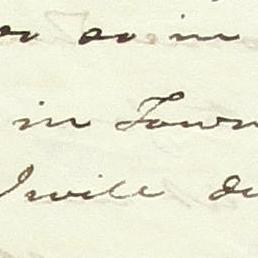 or so in
in Town
I will